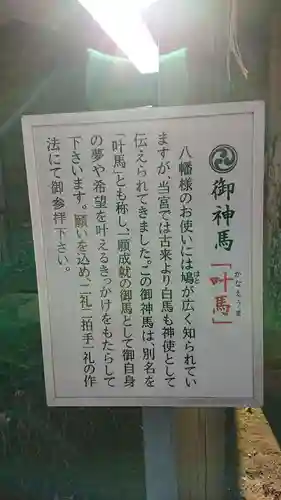 御神馬「叶馬」
かなとうま
八幡様のお使いには鳩が広く知られてい
はと
ますが、当宮では古来より白馬も神使として
伝えられてきました。この御神馬は、別名を
「叶馬」とも称し、一願成就の御馬として御自身
の夢や希望を叶えるきっかけをもたらして
下さいます。願いを込め、二礼二拍手一礼の作
法にて御参拝下さい。